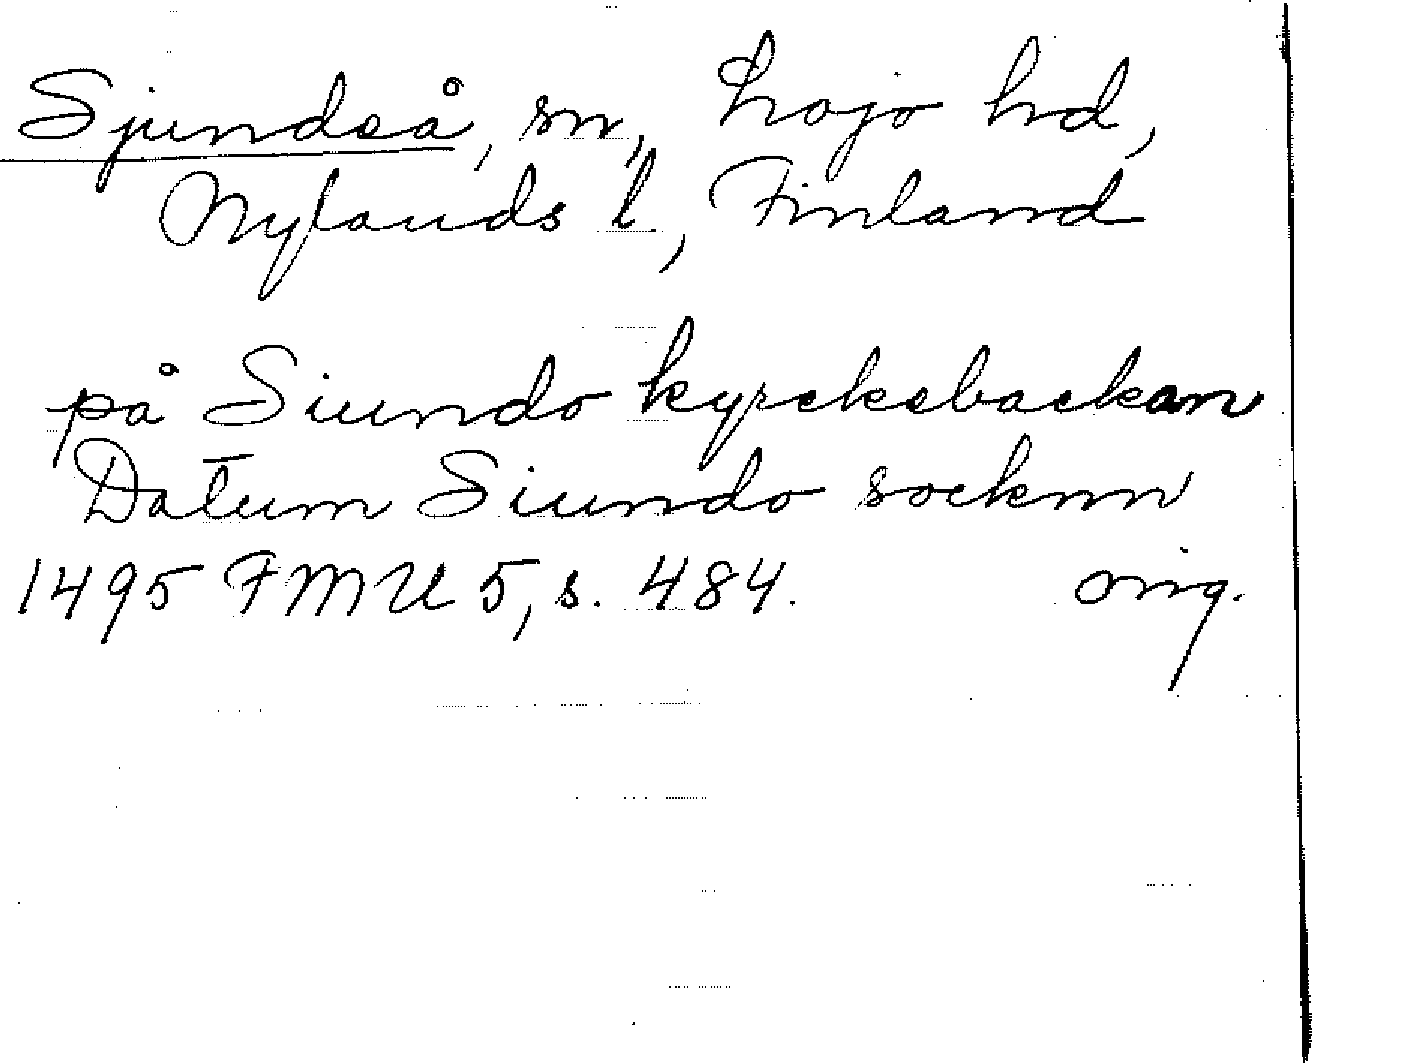 Sjundeå, sn, Lojo hd,
Nylands l, Finland
på Siundo kyrckebackan
Datum Siundo socknn
1495 FMU 5, s. 484. orig.